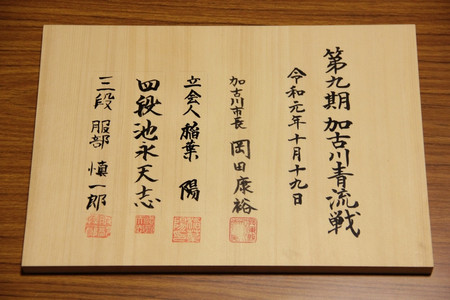 第九期 加古川青流戦
令和元年十月十九日
加古川市長 岡田康裕
立会人 稲葉 陽
四段 池永天志
三段 服部 慎一郎